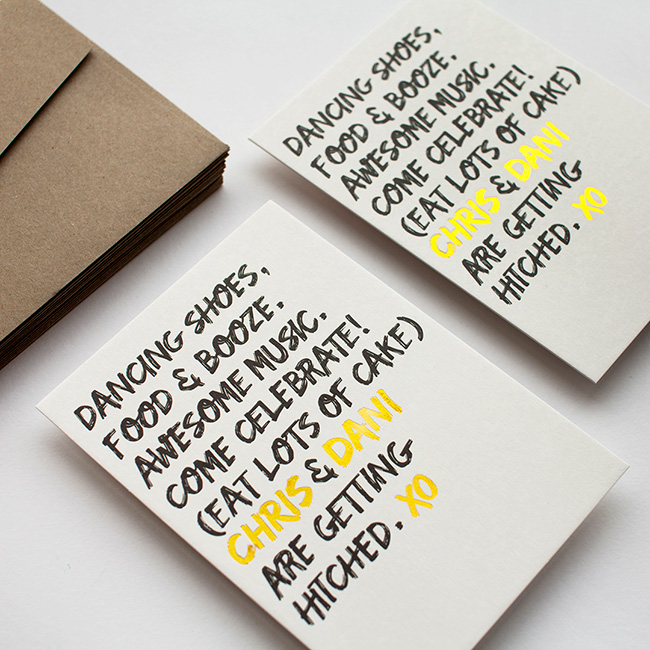 DANCING SHOES,
FOOD & BOOZE.
AWESOME MUSIC.
COME CELEBRATE!
(EAT LOTS OF CAKE)
CHRIS & DANI
ARE GETTING
HITCHED. XO
DANCING SHOES,
FOOD & BOOZE.
AWESOME MUSIC.
COME CELEBRATE!
(EAT LOTS OF CAKE)
CHRIS & DANI
ARE GETTING
HITCHED. XO